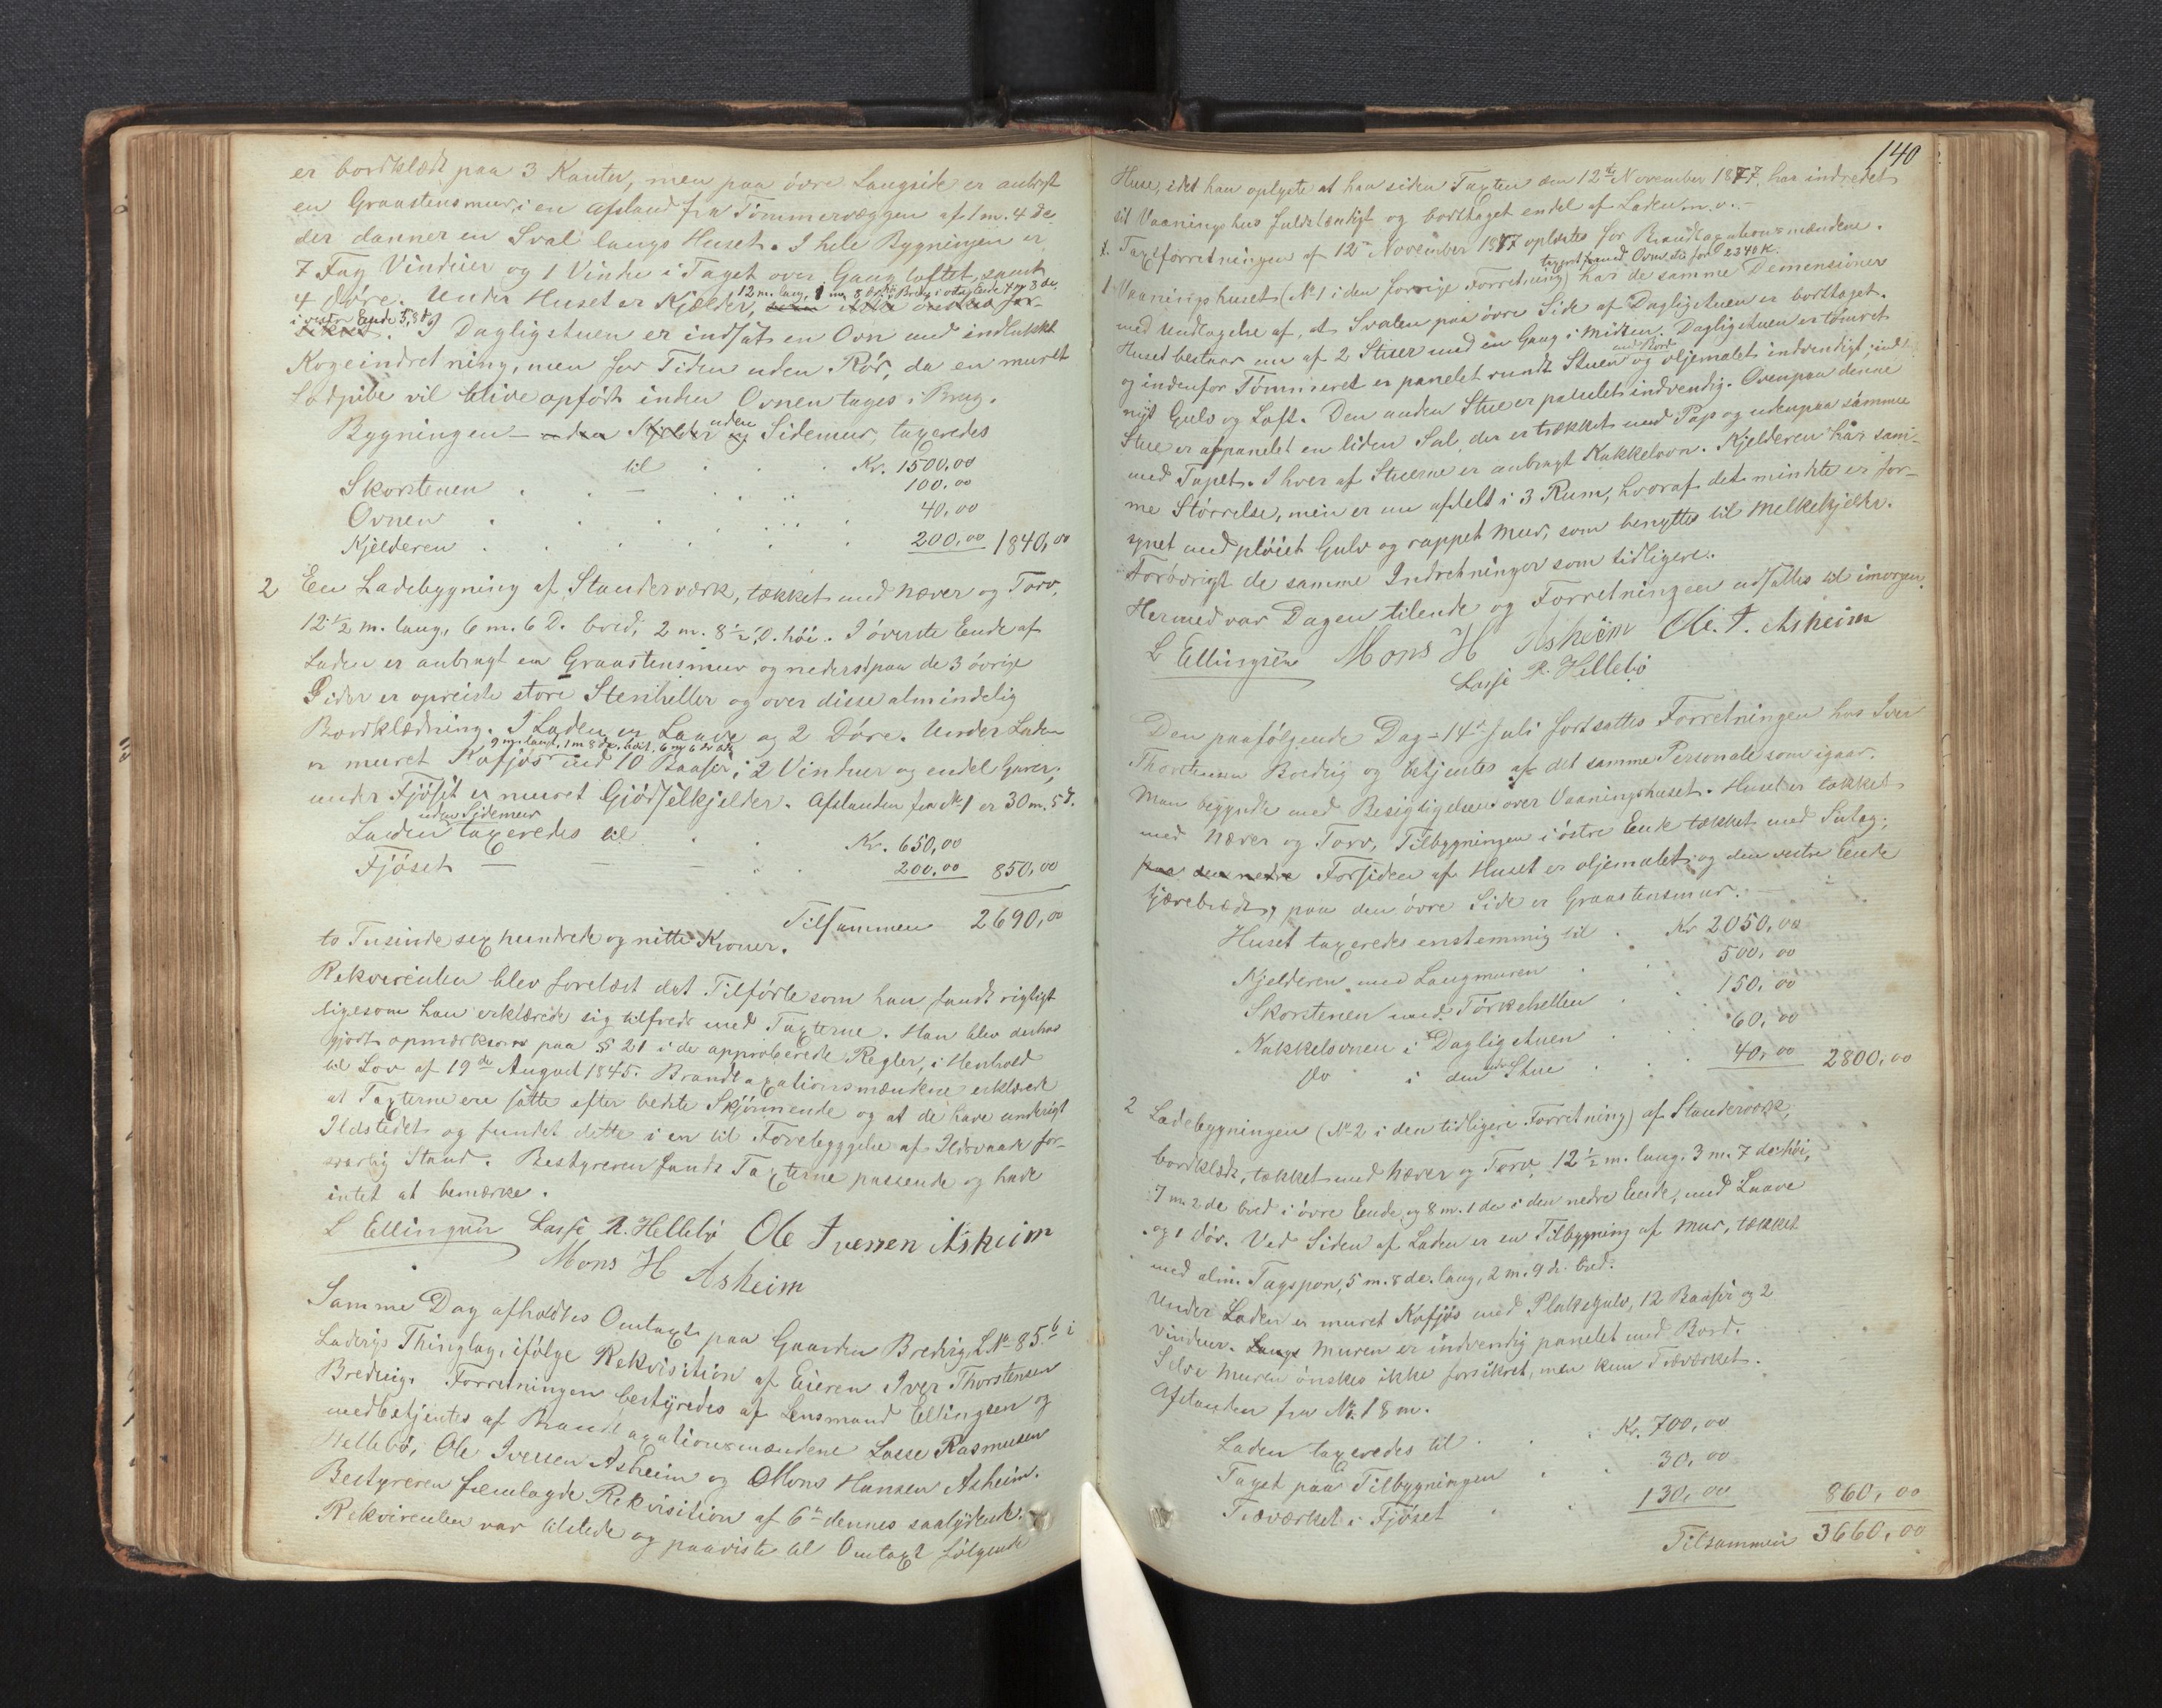 er bordklædt paa 3 Kanter, men paa øvre Langside er anbragt
en Graastensmur, i en Afstand fra Tømmervæggen af 1 m. 4 de
der danner en Sval langs Huset. I hele Bygningen er
7 Fag Vinduer og 1 Vindu i Taget over Gangloftet, samt
4 Døre. Under Huset er Kjelder, 12 m. lang,
i vestre Ende 5, I Dagligstuen er indsat en Ovn med indlukket
Kogeindretning, men for Tiden uden Rør, da en muret
Lodpibe vil blive opført inden Ovnen tages i Brug.
Bygningen – uden Sidemur, taxeredes
til Kr. 1500,00
Skorstenen — 100,00
Ovnen 40,00
Kjelderen 200,00 1840,00
2 En Ladebygning af Standerværk, tækket med Næver og Torv,
12 1/2 m. lang, 6 m. 6 D. bred, 2 m. 8 1/2 D. høi. I øverste Ende af
Laden er anbragt en Graastensmur og nederst paa de 3 øvrige
Sider er opreiste store Stenheller og over disse almindelig
Bordklædning. I Laden er Laave og 2 Døre. Under Laden
9 m. langt, 1 m 8 de. høit, 6 m 6 de
er muret Kofjøs med 10 Baaser, 2 Vinduer og endel Garer;
under Fjøset er muret Gjødselkjelder. Afstanden fra No 1 er 30 m. 5 d.
uden Sidemur
Laden taxeredes til Kr. 650,00
Fjøset — — — 200,00 850,00
Tilsammen 2690,00
to Tusinde sex hundrede og nitti Kroner.
Rekvirenten blev forelæst det Tilførte som han fandt rigtigt
ligesom han erklærede sig tilfreds med Taxterne. Han blev derhos
gjort opmærksom paa § 21 i de approberede Regler, i Henhold
til Lov af 19de August 1845. Brandtaxationsmændene erklærede
at Taxterne ere satte efter bedste Skjønnende og at de have undersøgt
Ildstedet og fundet dette i en til Forebyggelse af Ildsvaade for-
svarlig Stand. Bestyreren fandt Taxterne passende og havde
intet at bemærke.
L Ellingsen Lasse R. Hellebø Ole Iversen Asheim
Mons H Asheim
Samme Dag afholdtes Omtaxt paa Gaarden Bredvig, L.No 85 b i
Ladvigs Thinglag, ifølge Rekvisition af Eieren Iver Thorstensen
Bredvig. Forretningen bestyredes af Lensmand Ellingsen og
medbetjentes af Brandtaxationsmændene Lasse Rasmusen
Hellebø, Ole Iversen Asheim og Mons Hansen Asheim.
Bestyreren fremlagde Rekvisition af 6te dennes saalydende.
Rekvirenten var tilstede og paaviste til Omtaxt følgende
140
Huse, idet han oplyste at han siden Taxten den 12te November 1877 har indredet
sit Vaaningshus fuldstændigt og borttaget endel af Laden m. v. –
Taxtforretningen af 12te November 1877 oplæstes for Brandtaxationsmændene.
taxeret med Ovn etc for 2340 K.
1 Vaaningshuset (No 1 i den forrige Forretning) har de samme Demensioner
med Undtagelse af, at Svalen paa øvre Side af Dagligstuen er borttaget.
Huset bestaar nu af 2 Stuer med en Gang i Midten. Dagligstuen er tømret
med Bord
og indenfor Tømmeret er panelet rundt Stuen og oljemalet indvendigt; indl.
nyt Gulv og Loft. Den anden Stue er panelet indvendig. Ovenpaa denne
Stue er afpanelet en liden Sal, der er trækket med Pap og udenpaa samme
med Tapet. I hver af Stuerne er anbragt Kakkelovn. Kjelderen har sam-
me Størrelse, men er nu afdelt i 3 Rum, hvoraf det mindste er for-
synet med pløiet Gulv og rappet Mur, som benyttes til Melkekjelder.
Forøvrigt de samme Indretninger som tidligere.
Hermed var Dagen tilende og Forretningen udsattes til imorgen.
L Ellingsen Mons H Asheim Ole. I. Asheim
Lasse R. Hellebø
Den paafølgende Dag – 14de Juli fortsattes Forretningen hos Iver
Thorstensen Bredvig og betjentes af det samme Personale som igaar.
Man begyndte med Besigtigelsen over Vaaningshuset. Huset er tækket
med Næver og Torv, Tilbygningen i østre Ende tækket med Sutag;
paa den nedre Forsiden af Huset er oljemalet og den vestre Ende
tjærebrædt, paa den øvre Side er Graastensmur. –
Huset taxeredes enstemmig til Kr 2050,00
Kjelderen med Langmuren 500,00
Skorstenen med Tørkehellen 150,00
Kakkelovnen i Dagligstuen 60,00
Do i den Stue 40,00 2800,00
2 Ladebygningen (No 2 i den tidligere Forretning) af Standerværk,
bordklædt, tækket med Næver og Torv, 12 1/2 m. lang, 3 m. 7 de høi,
7 m. 2 de bred i øvre Ende og 8 m. 1 de i den nedre Ende, med Laave
og 1 Dør. Ved Siden af Laden er en Tilbygning af Mur, tækket
med alm. Tagspon, 5 m. 8 de. lang, 2 m. 9 d. bred.
Under Laden er muret Kofjøs med Plankegulv, 12 Baaser og 2
Vinduer. Langs Muren er indvendig panelet med Bord.
Selve Muren ønskes ikke forsikret, men kun Træværket.
Afstanden fra No 1 8 m.
Laden taxeredes til Kr. 700,00
Taget paa Tilbygningen 30,00
Træværket i Fjøset 130,00 860,00
Tilsammen 3660,00